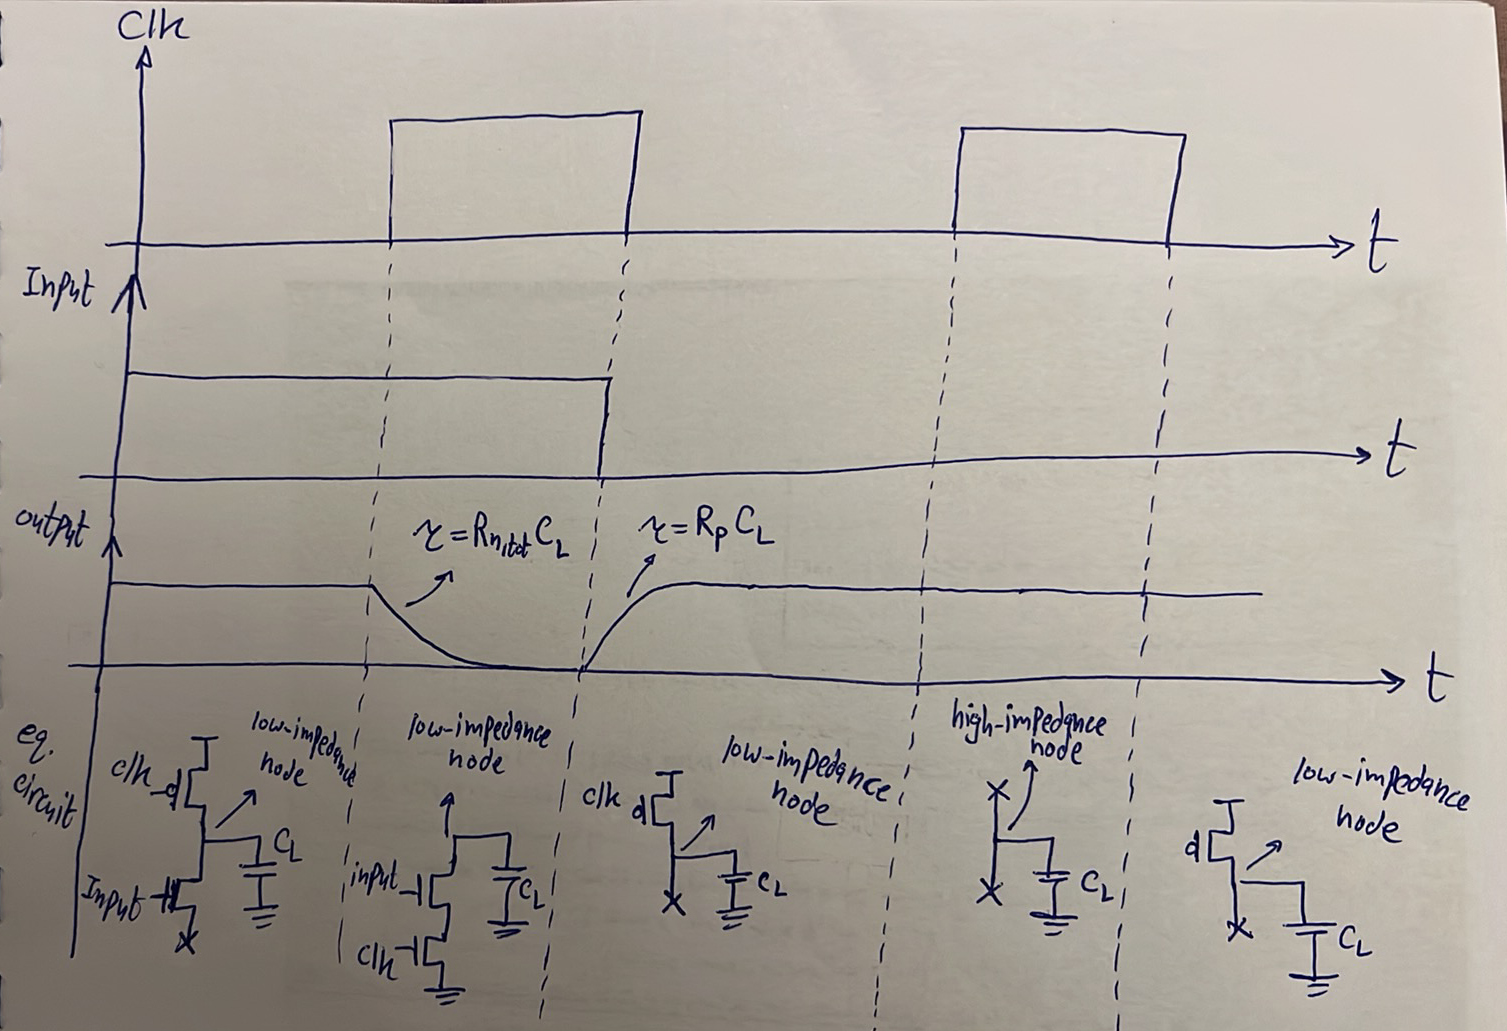 Clk
t
Input
t
output
τ = Rn,tot CL
τ = Rp CL
t
eq.
circuit
clk
low-impedance
node
CL
Input
low-impedance
node
input
CL
clk
clk
low-impedance
node
CL
high-impedance
node
CL
low-impedance
node
CL